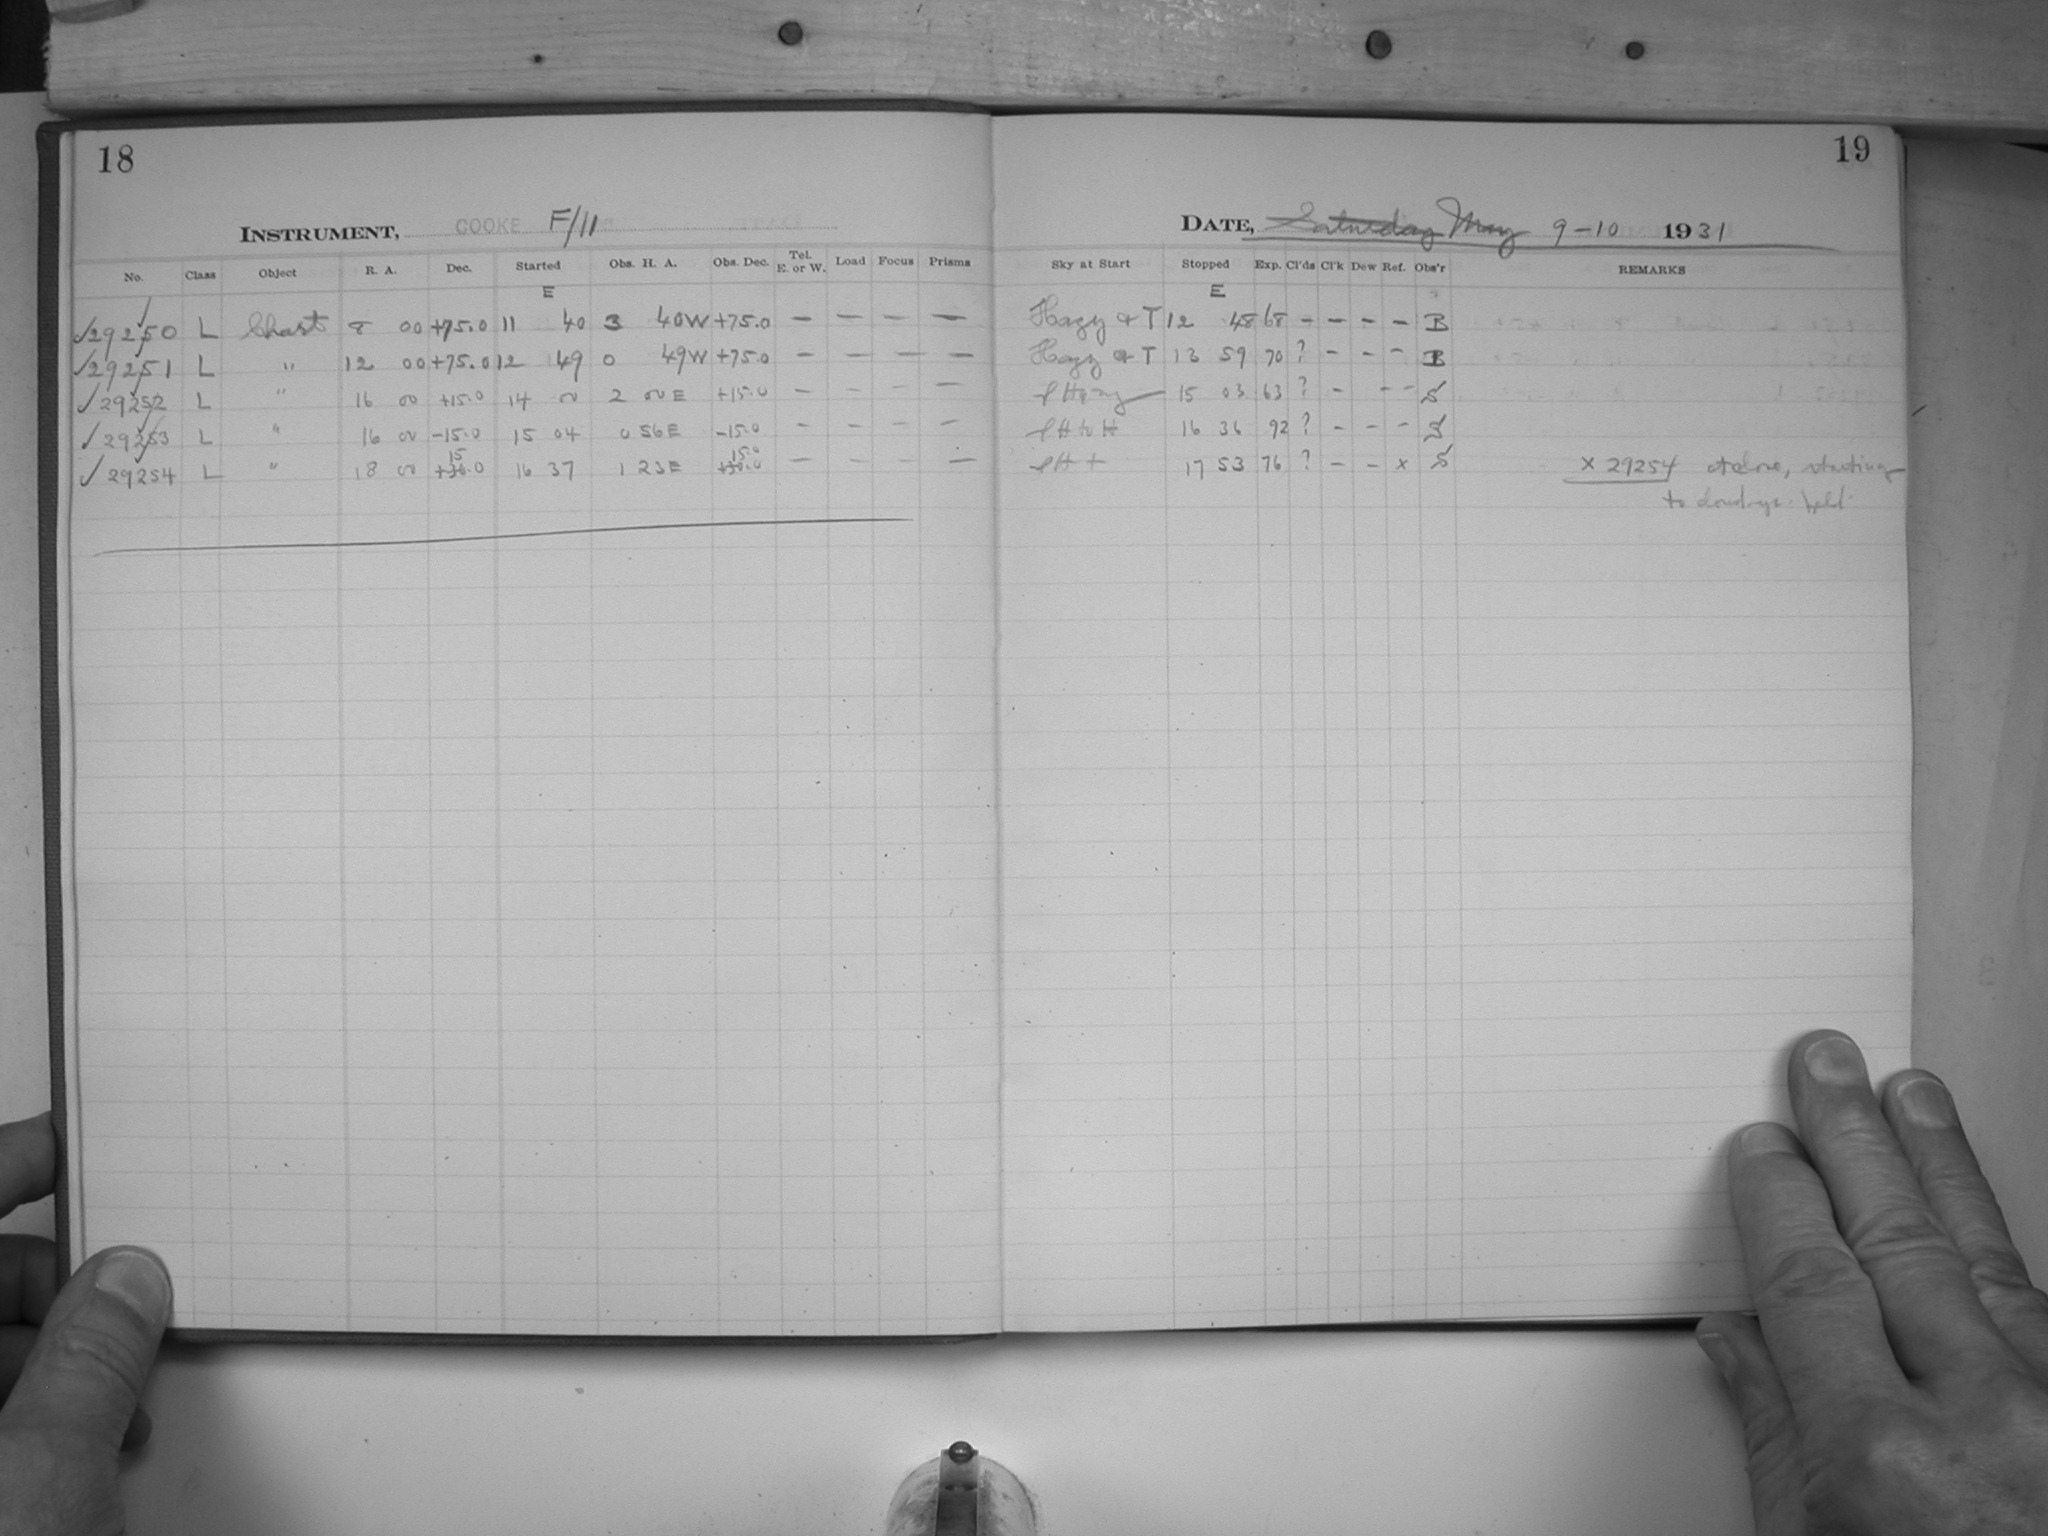 18
INSTRUMENT, COOKE F/11
No. Class Object R. A. Dec. Started Obs. H. A. Obs. Dec. Tel. E. or W. Load Focus Prisms
E
✓29250 L Chart 8 00 +75.0 11 40 3 40W +75.0 — — — —
✓29251 L " 12 00 +75.0 12 49 0 49W +75.0 — — — —
✓29252 L " 16 00 +15.0 14 00 2 00E +15.0 — — — —
✓29253 L " 16 00 -15.0 15 04 0 56E -15.0 — — — —
15 15.0
✓29254 L " 18 00 +30.0 16 37 1 23E +30.0 — — — —
19
DATE, Saturday May 9-10 1931
Sky at Start Stopped Exp. Cl'ds Cl'k Dew Ref. Obs'r REMARKS
E
Hazy & T 12 48 68 - - - - B
Hazy & T 13 59 70 ? - - - B
Hazy 15 03 63 ? - - - S
H to H 16 36 92 ? - - - S
17 53 76 ? - - x S x 29254 starting
to